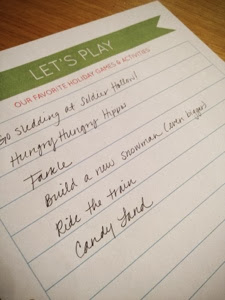 LET'S PLAY
OUR FAVORITE HOLIDAY GAMES & ACTIVITIES
Go Sledding at Soldier Hollow!
Hungry Hungry Hippos
Farkle
Build a new snowman (even bigger)
Ride the train
Candy Land